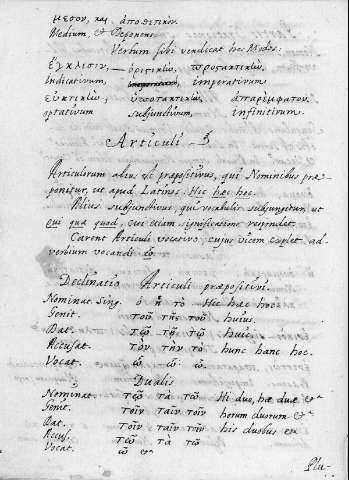 μεσον, και αποθετικον.
Medium et Deponens
Verbum sibi vendicat hos Modos:
ἔγκλισιν, — ὁριστικὼ, προστακτικὼ,
Indicativum, imperativum
εὐκτικὼ, ὑποτακτικὼ, ἀπαρέμφατον.
optativum subjunctivum, infinitivum.
Articuli
Articulorum alius est præpositivus, qui Nominibus præ-
ponitur, ut apud Latinos: Hic hæc hoc.
Alius subjunctivus, qui vocabulis subjungitur, ut
qui quæ quod, cui etiam significatione respondet.
Carent Articuli vocativo, cujus vicem explet ad-
verbium vocandi ὦ.
Declinatio Articuli præpositivi.
Nominat. Sing. ὁ ἡ τὸ Hic hæc hoc
Genit. τοῦ τῆς τοῦ hujus.
Dat. τῷ τῇ τῷ huic.
Accusat. τὸν τὴν τὸ hunc hanc hoc.
Vocat. ὦ - ὦ. ὦ.
Dualis
Nominat. τὼ τὰ τὼ Hi duo, hæ duæ &c
Genit. τοῖν ταῖν τοῖν horum duorum &c
Dat. τοῖν ταῖν τοῖν his duobus &c
Accus. τὼ τὰ τὼ
Vocat. ὦ &c
Plu-